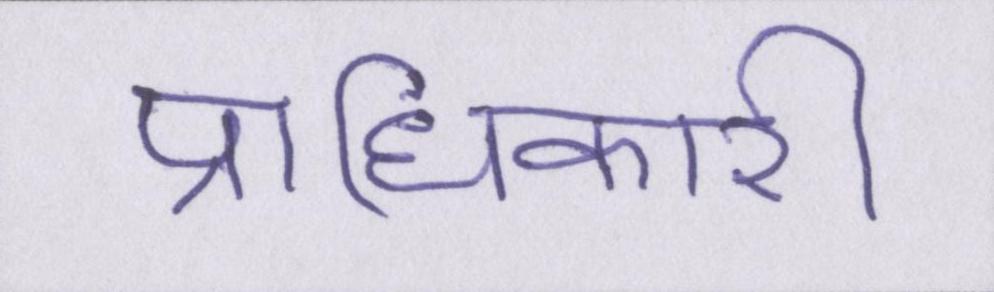 प्राधिकारी